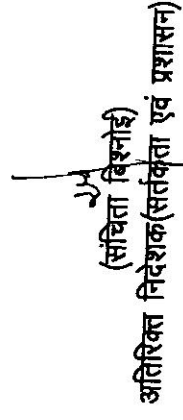 (संचिता बिश्नोई)
अतिरिक्त निदेशक(सर्तकता एवं प्रशासन)